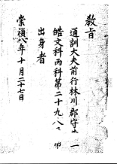 教旨
通訓大夫前行林川郡守
皓文科丙科第二十九人
出身者
崇禎八年十月二十七日